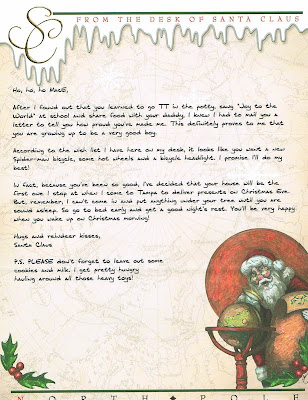 SC
FROM THE DESK OF SANTA CLAUS
Ho, ho, ho Matt,
After I found out that you learned to go TT in the potty, sang "Joy to the
World" at school and share food with your daddy, I knew I had to mail you a
letter to tell you how proud you've made me. This definitely proves to me that
you are growing up to be a very good boy.
According to the wish list I have here on my desk, it looks like you want a new
Spider-man bicycle, some hot wheels and a bicycle headlight. I promise I'll do my
best!
In fact, because you've been so good, I've decided that your house will be the
first one I stop at when I come to Tampa to deliver presents on Christmas Eve.
But, remember, I can't come in and put anything under your tree until you are
sound asleep. So go to bed early and get a good night's rest. You'll be very happy
when you wake up on Christmas morning!
Hugs and reindeer kisses,
Santa Claus
P.S. PLEASE don't forget to leave out some
cookies and milk. I get pretty hungry
hauling around all those heavy toys!
NORTH POLE